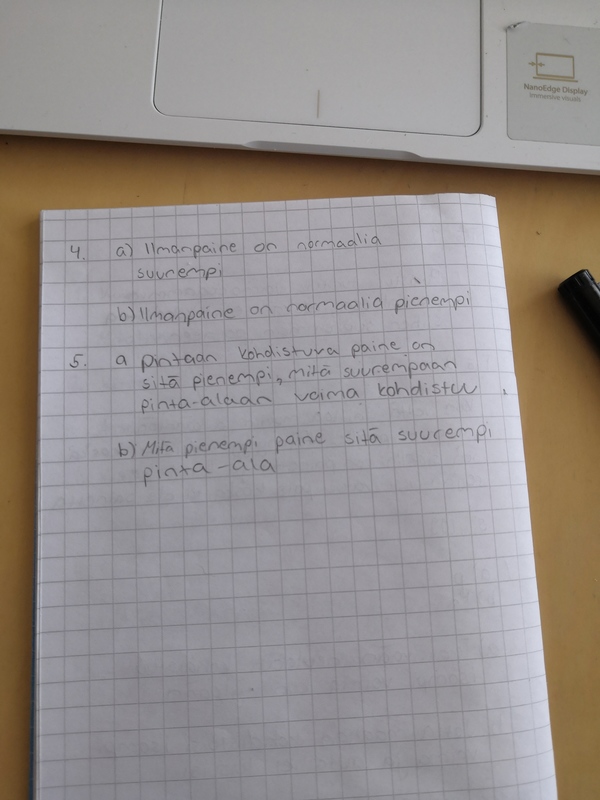 NanoEdge Display
Immersive visuals
4. a) Ilmanpaine on normaalia
suurempi
b) Ilmanpaine on normaalia pienempi
5. a Pintaan kohdistuva paine on
sitä pienempi, mitä suurempaan
pinta-alaan voima kohdistuu.
b) Mitä pienempi paine sitä suurempi
pinta-ala